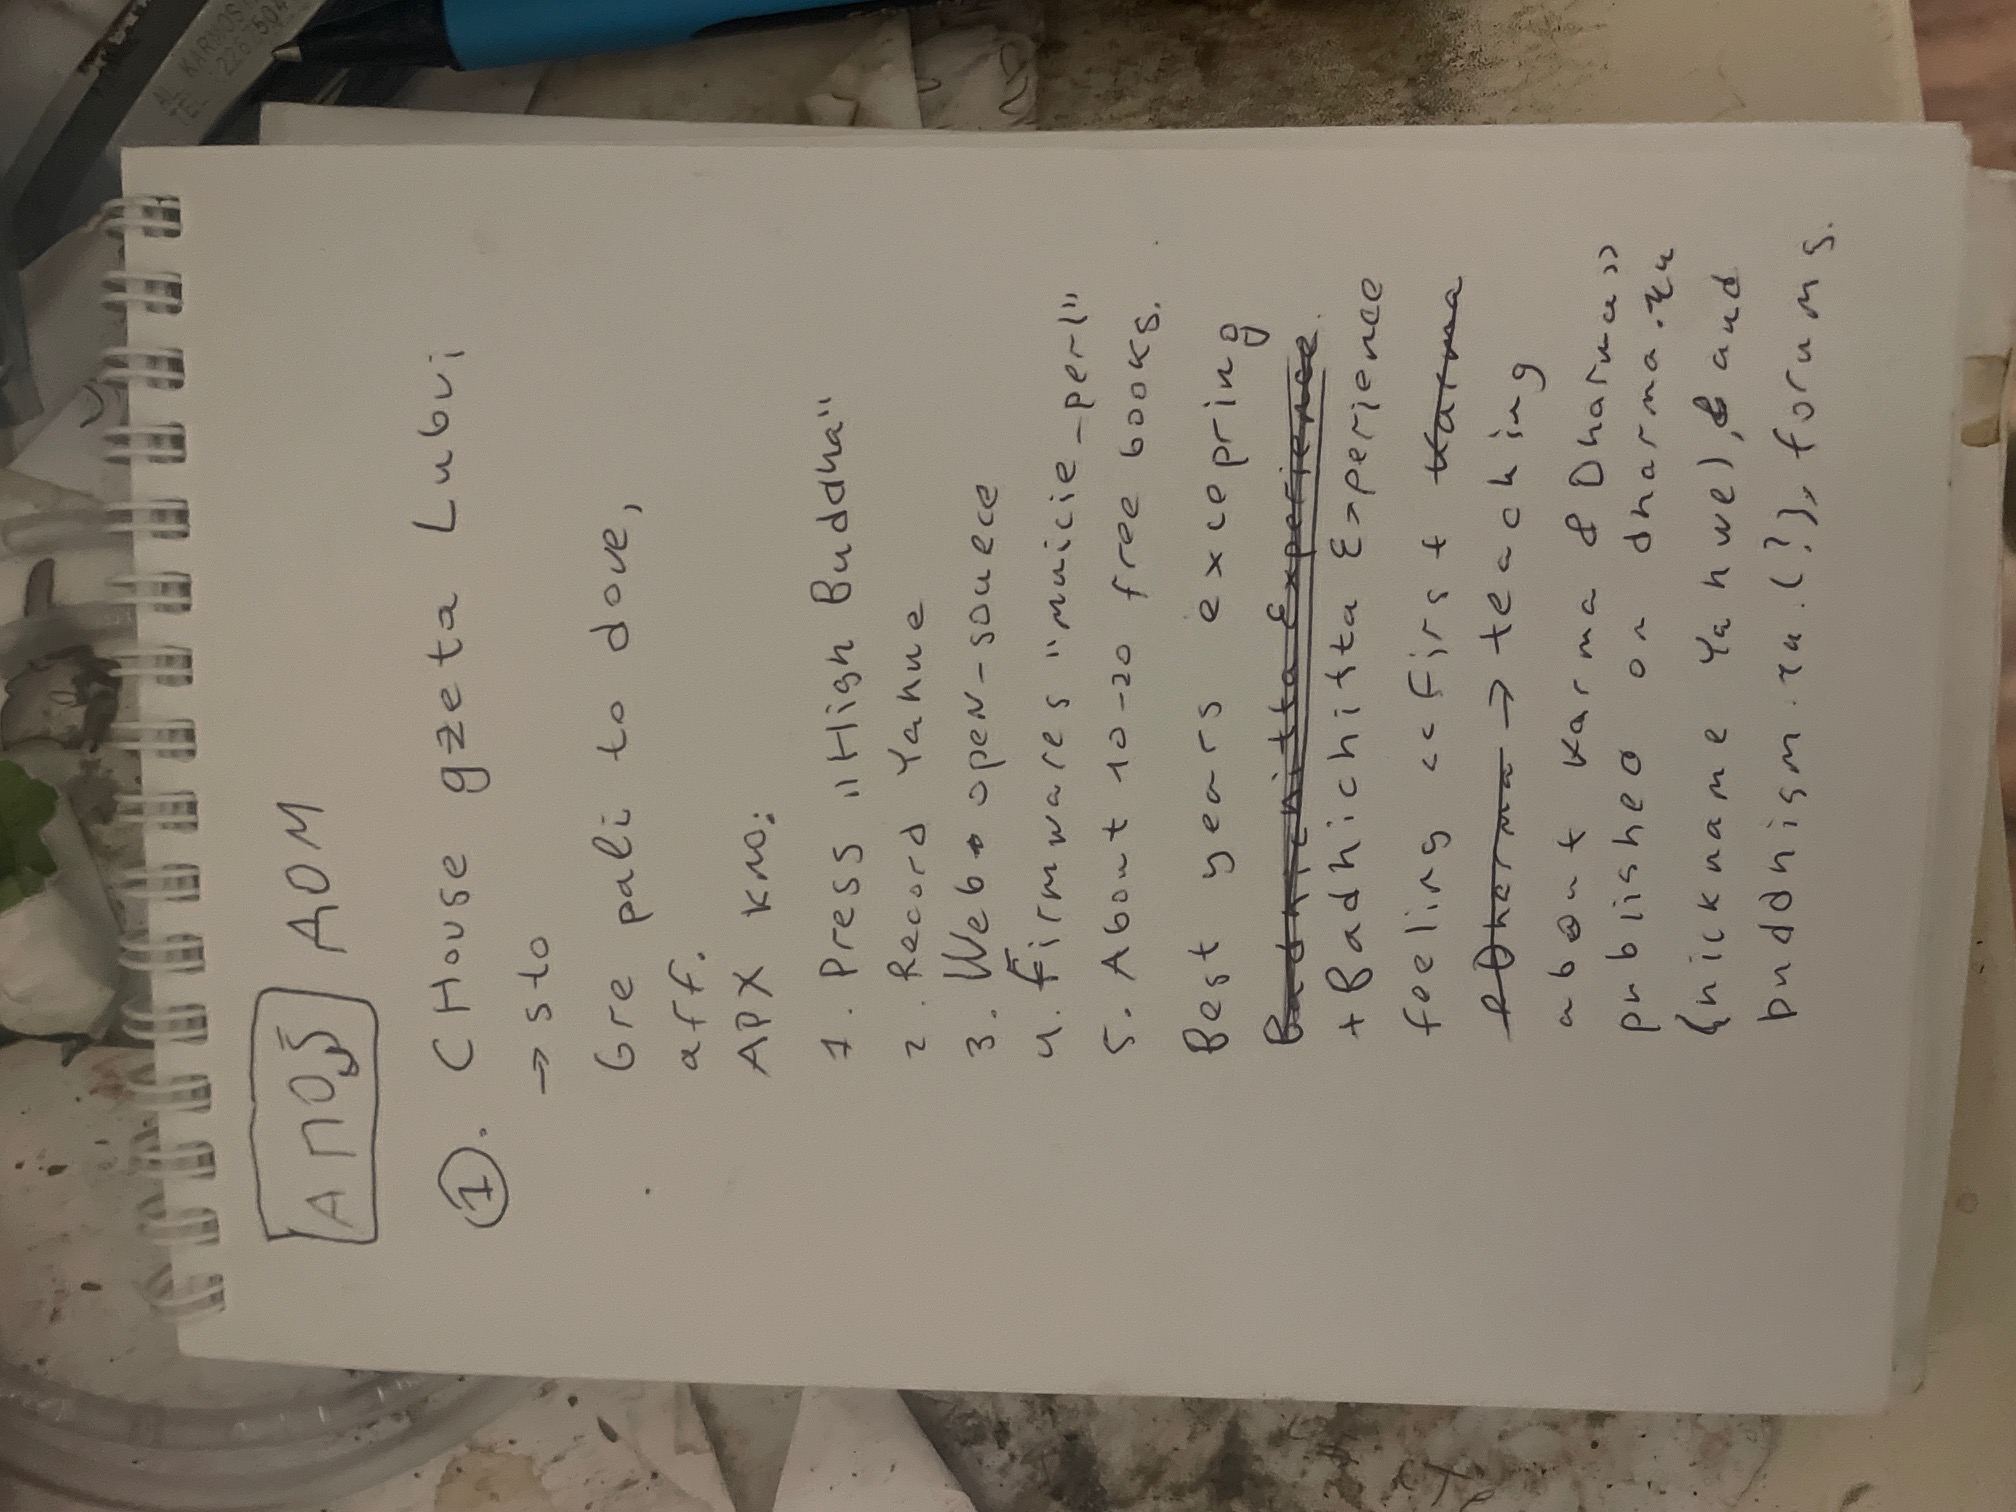 ДОМ
1. CHouse gzeta Lubvi
→ sto
Gre pali to dove,
aff.
APX kno:
1. Press „High Buddha"
2. Record Yahue
3. Web open-souece
4. Firmwares "muicie_perl"
5. About 10-20 free books.
Best years excepring
Badhichitta Experience.
+ Badhichitta Experience
feeling <<First Karma
& Dharma → teaching
about Karma & Dharma>>
published on dharma.ru
(nickname Yahwe), and
buddhism.ru.(?), forums.
AL KARMOS
TEL.